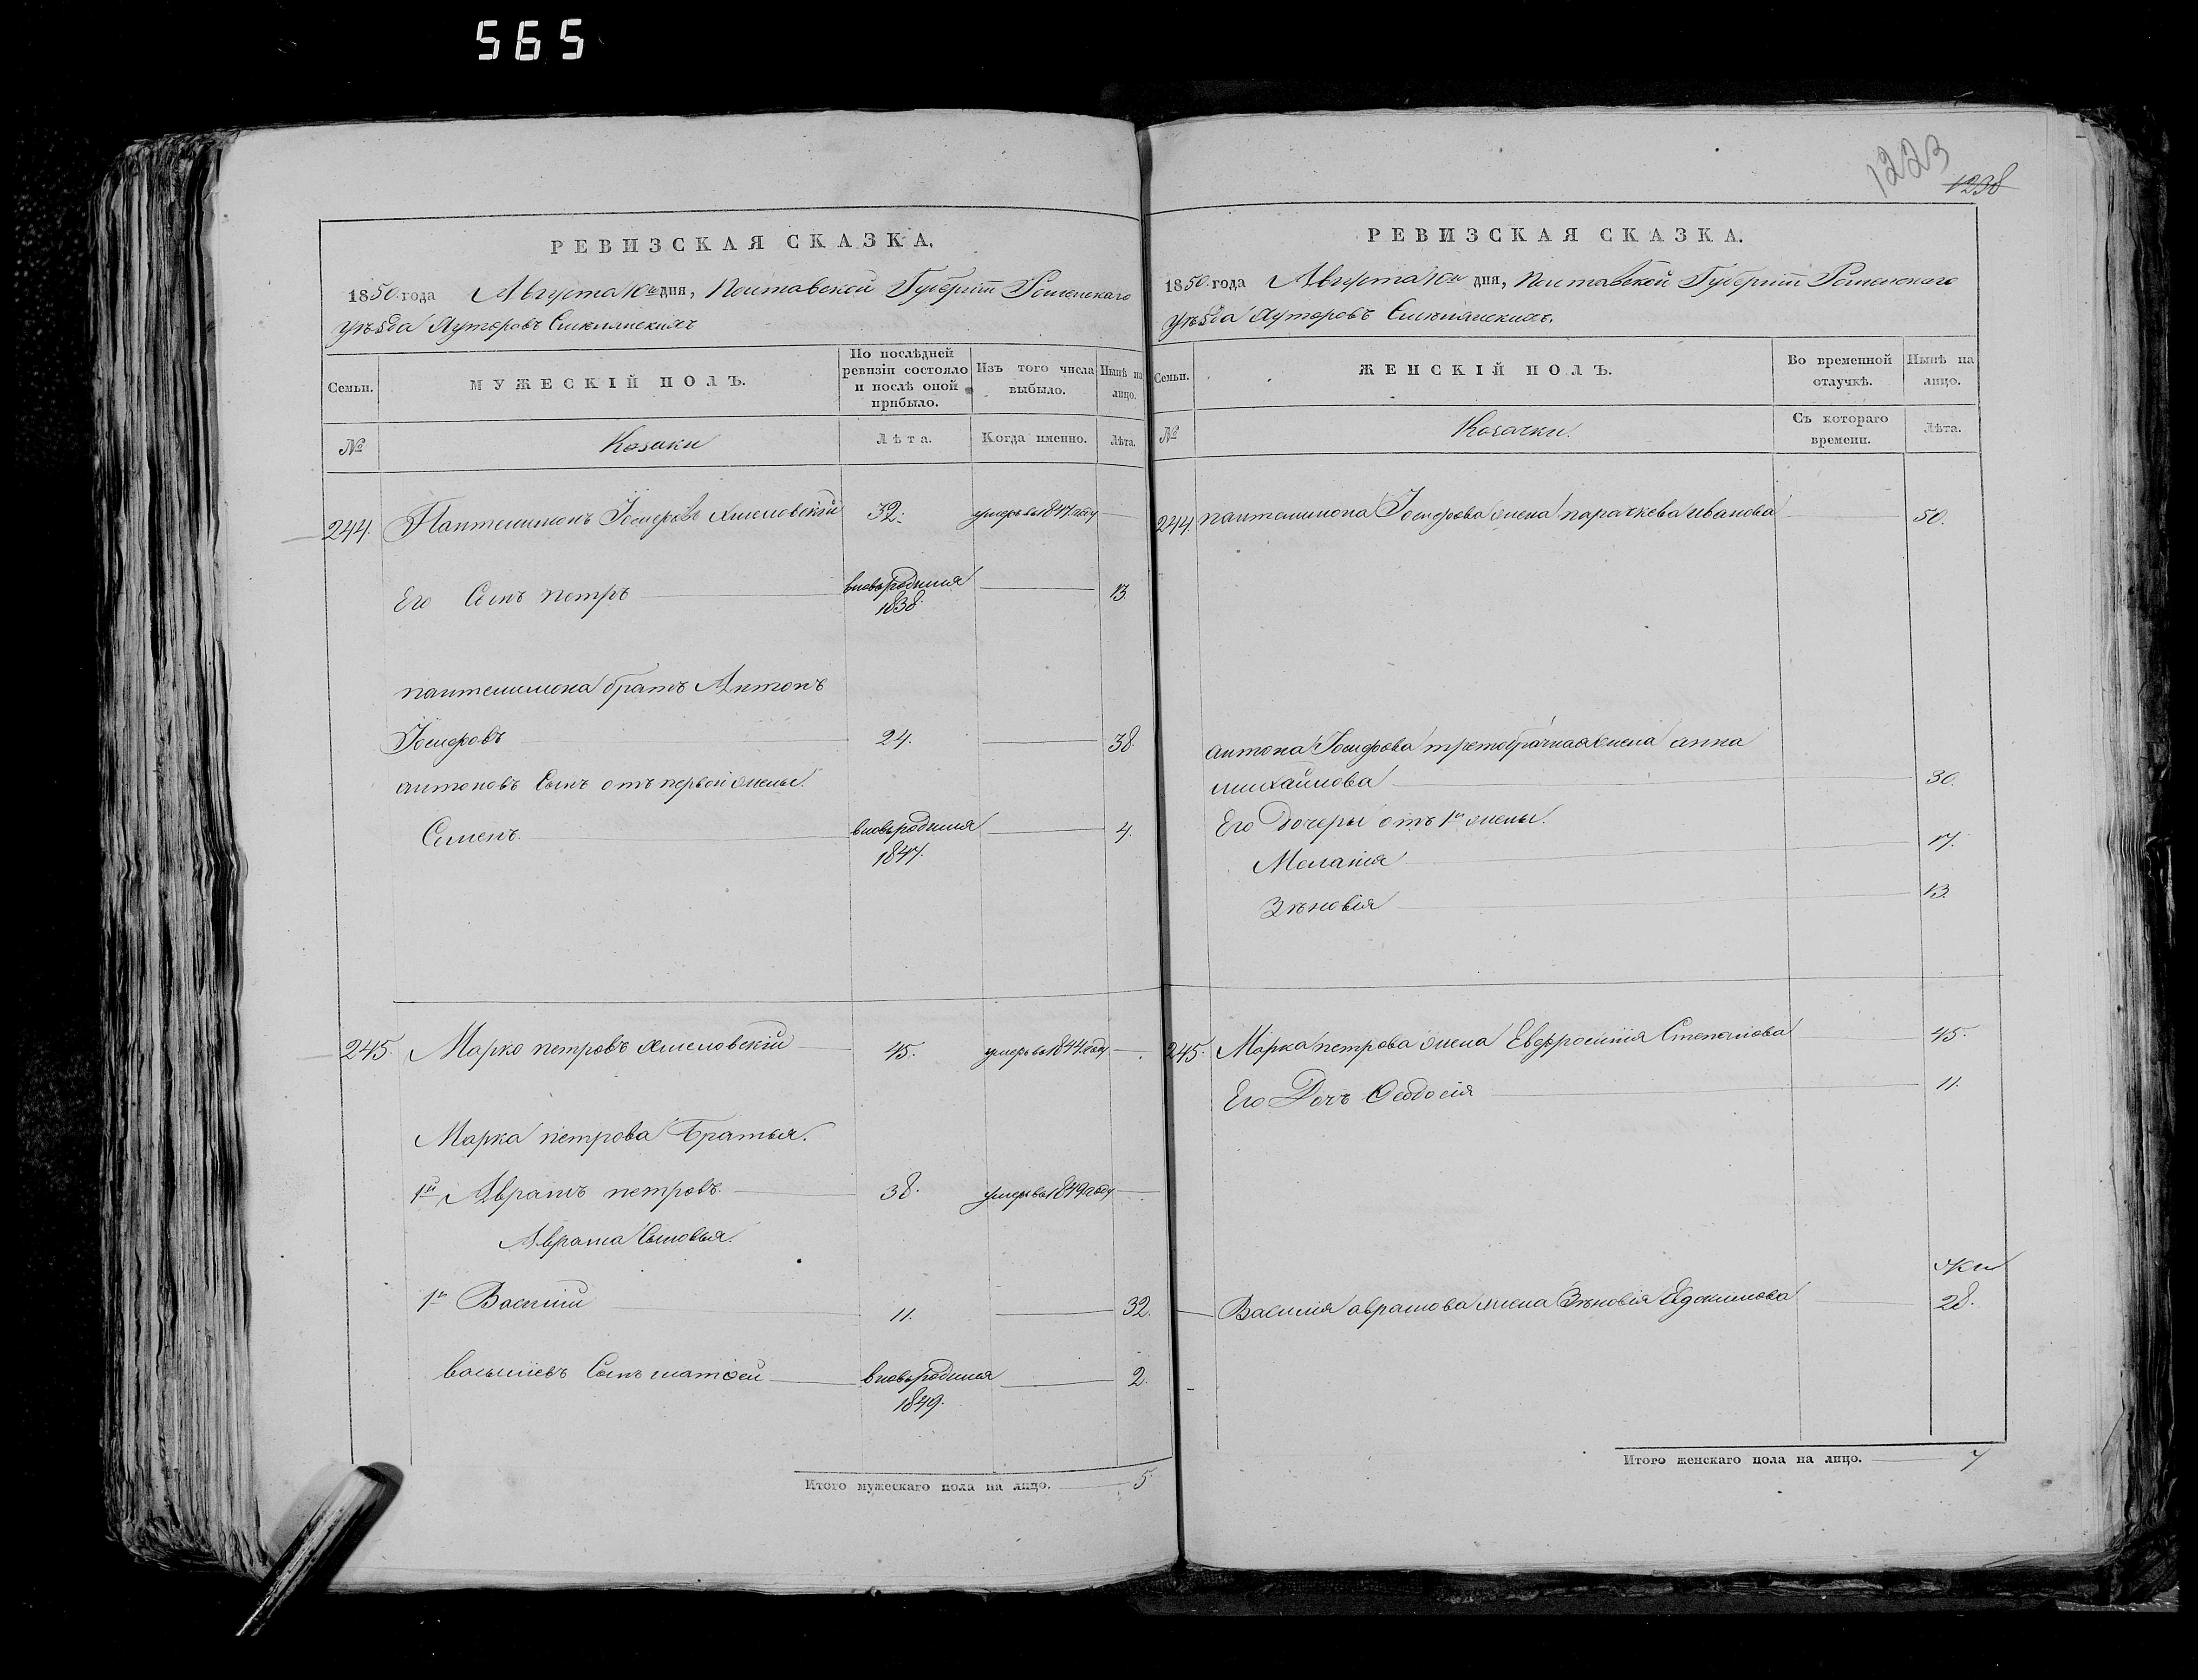 565
1223
1238
РЕВИЗСКАЯ СКАЗКА.
1850 года Августа 10го дня, Полтавской Губерніи Роменскаго
уѣзда Хуторовъ Смѣлянскихъ
Семьи.
МУЖЕСКІЙ ПОЛЪ.
По послѣдней ревизіи состояло и послѣ оной прибыло.
Изъ того числа выбыло.
Нынѣ на лицо.
№
Козаки
Лѣта.
Когда именно.
Лѣта.
244. Пантелимонъ Іосифовъ Хмеловскій 32. умеръ въ 1847 году
Его Сынъ петръ вновь родился 1838. 13
пантелимона братъ Антонъ
Іосифовъ 24. 38.
антоновъ Сынъ отъ первой жены.
Семенъ. вновь родился 1847. 4.
245. Марко петровъ Хмеловскій 45. умеръ въ 1844 году
Марка петрова Братья.
1й Аврамъ петровъ. 38. умеръ въ 1849 году
Аврама Сыновья.
1й Василій 11. 32.
васыліевъ Сынъ матѳей вновь родился 1849. 2.
Итого мужескаго пола на лицо. 5
РЕВИЗСКАЯ СКАЗКА.
1850 года Августа 10го дня, Полтавской Губерніи Роменскаго
уѣзда Хуторовъ Смѣлянскихъ.
Семьи.
ЖЕНСКІЙ ПОЛЪ.
Во временной отлучкѣ.
Нынѣ на лицо.
№
Козачки.
Съ котораго времени.
Лѣта.
244. пантелимона Іосифова жена параскева иванова 50.
антона Іосифова третобрачная жена анна
михайлова 30.
Его дочеры отъ 1й жены.
Мелания 17.
Зѣновія 13
245. Марка петрова жена Евфросинія Степанова 45.
Его Дочъ Ѳеодосія 11.
Василия аврамова жена Зѣновія Евдокимова 28.
Итого женскаго пола на лицо. 7